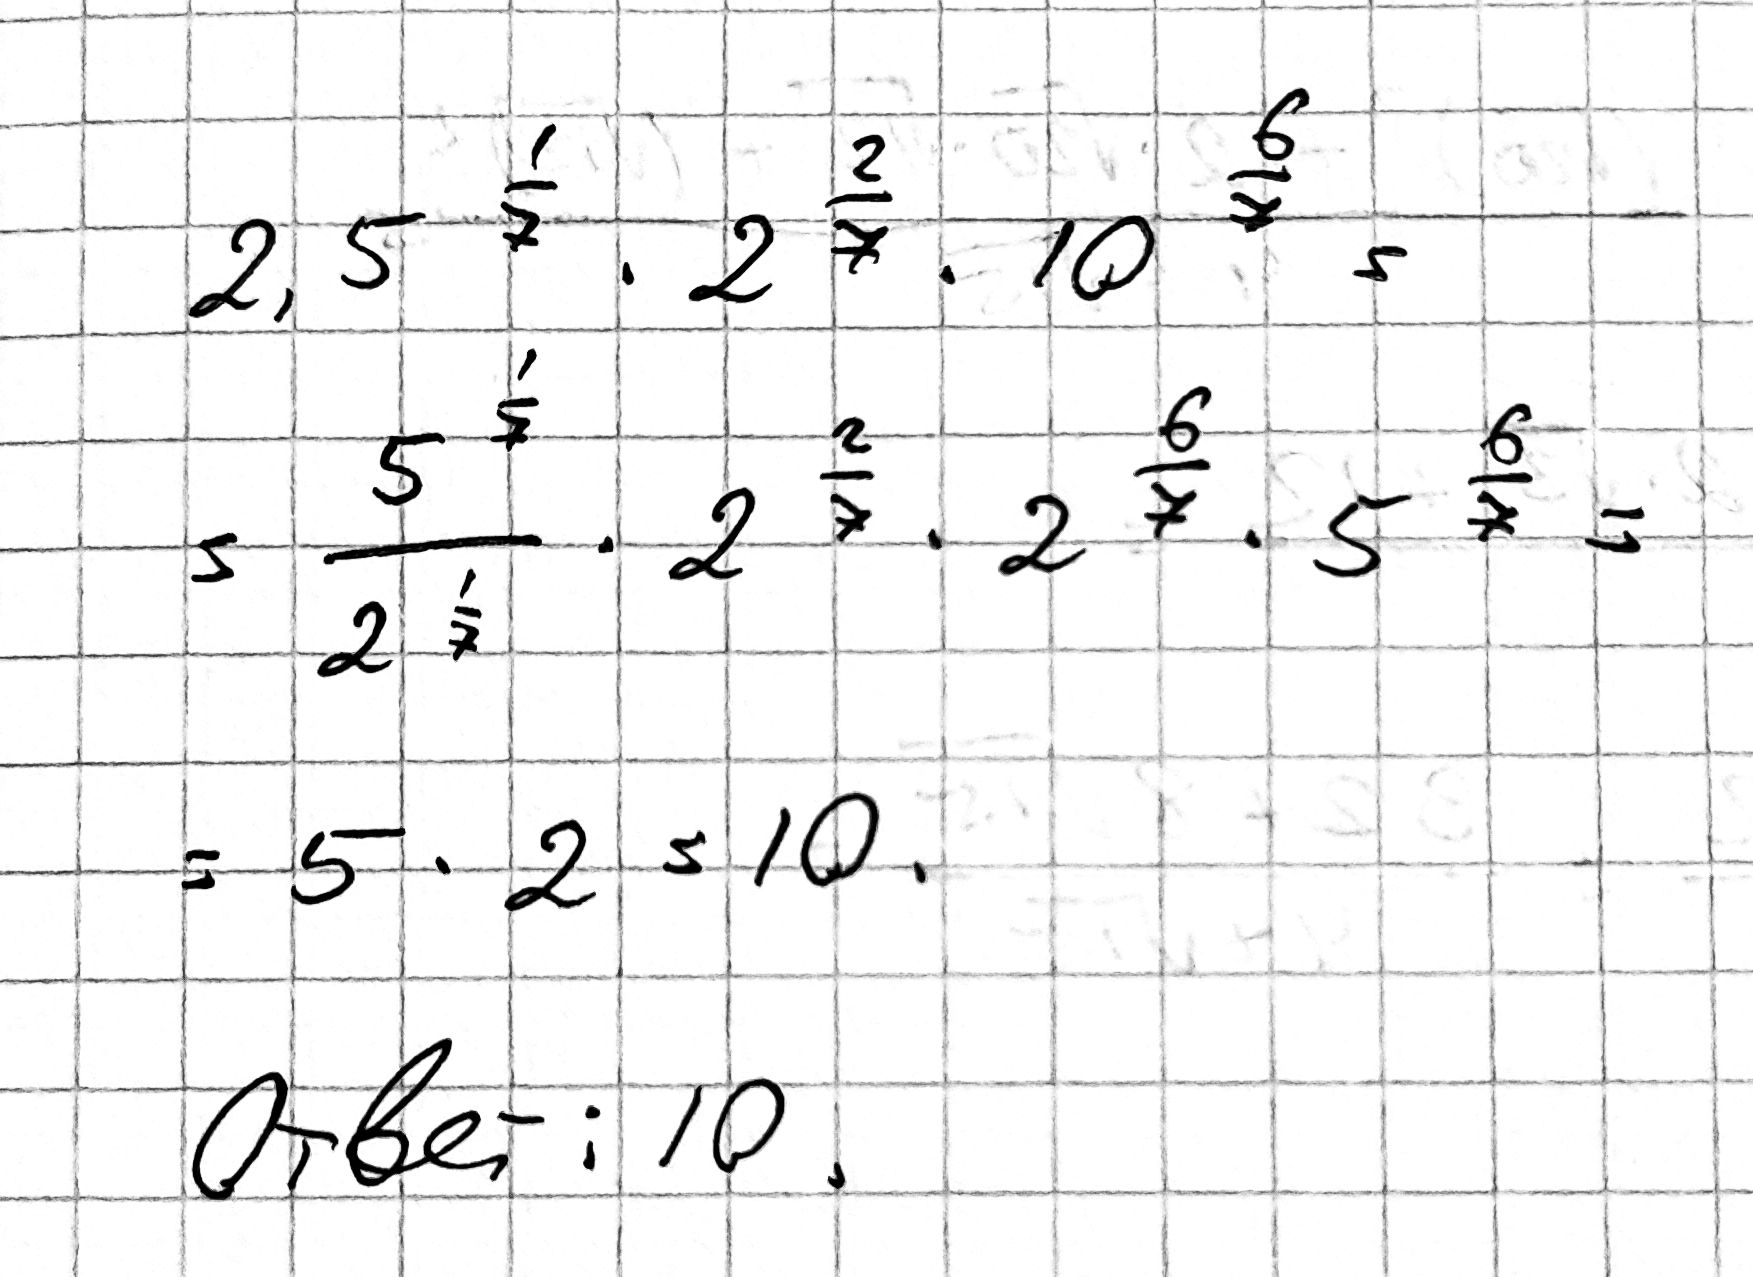 2,5^{1/7} · 2^{2/7} · 10^{6/7} =
= \frac{5^{1/7}}{2^{1/7}} · 2^{2/7} · 2^{6/7} · 5^{6/7} =
= 5 · 2 = 10.
Ответ: 10.